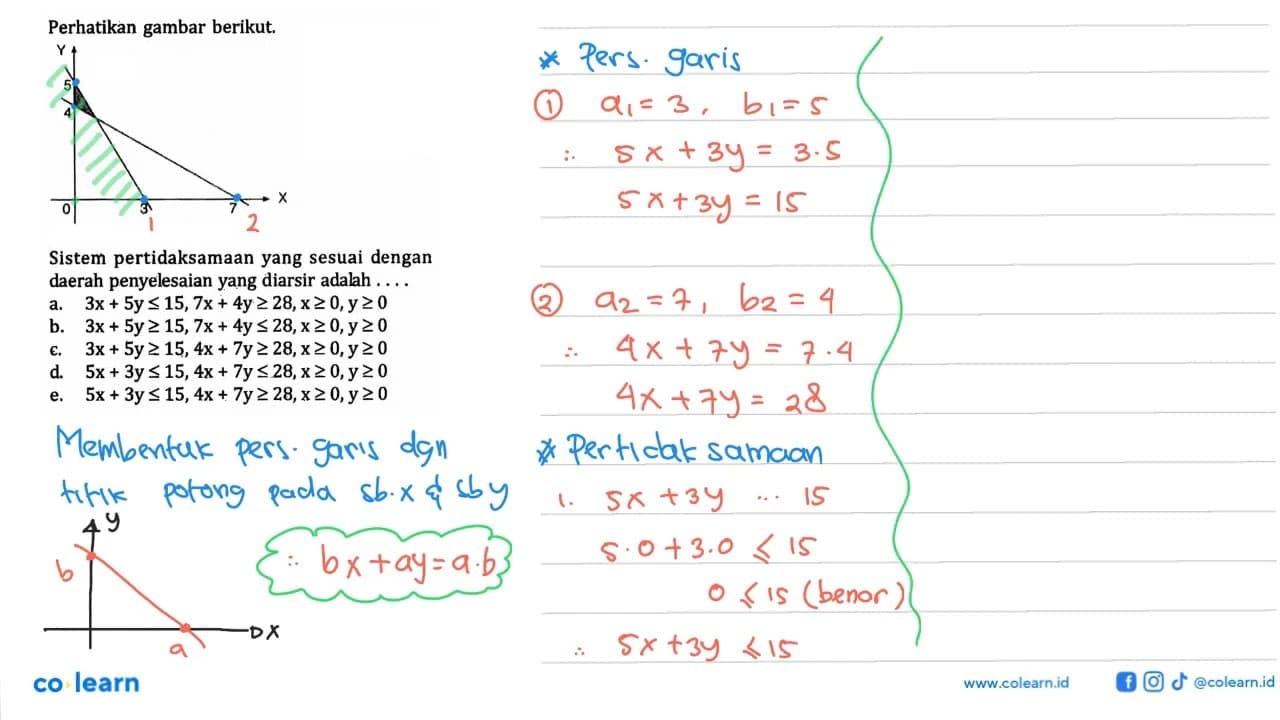 Perhatikan gambar berikut.
Y
5
4
0
3
7
X
1
2
Sistem pertidaksamaan yang sesuai dengan
daerah penyelesaian yang diarsir adalah . . . .
a. 3x + 5y ≤ 15, 7x + 4y ≥ 28, x ≥ 0, y ≥ 0
b. 3x + 5y ≥ 15, 7x + 4y ≤ 28, x ≥ 0, y ≥ 0
c. 3x + 5y ≥ 15, 4x + 7y ≥ 28, x ≥ 0, y ≥ 0
d. 5x + 3y ≤ 15, 4x + 7y ≤ 28, x ≥ 0, y ≥ 0
e. 5x + 3y ≤ 15, 4x + 7y ≥ 28, x ≥ 0, y ≥ 0
Membentuk pers. garis dgn
titik potong pada sb.x & sb y
y
b
a
x
∴ bx + ay = a.b
* Pers. garis
① a₁ = 3, b₁ = 5
∴ 5x + 3y = 3.5
5x + 3y = 15
② a₂ = 7, b₂ = 4
∴ 4x + 7y = 7.4
4x + 7y = 28
* Pertidaksamaan
1. 5x + 3y ... 15
5.0 + 3.0 ≤ 15
0 ≤ 15 (benar)
∴ 5x + 3y ≤ 15
co learn
www.colearn.id
@colearn.id